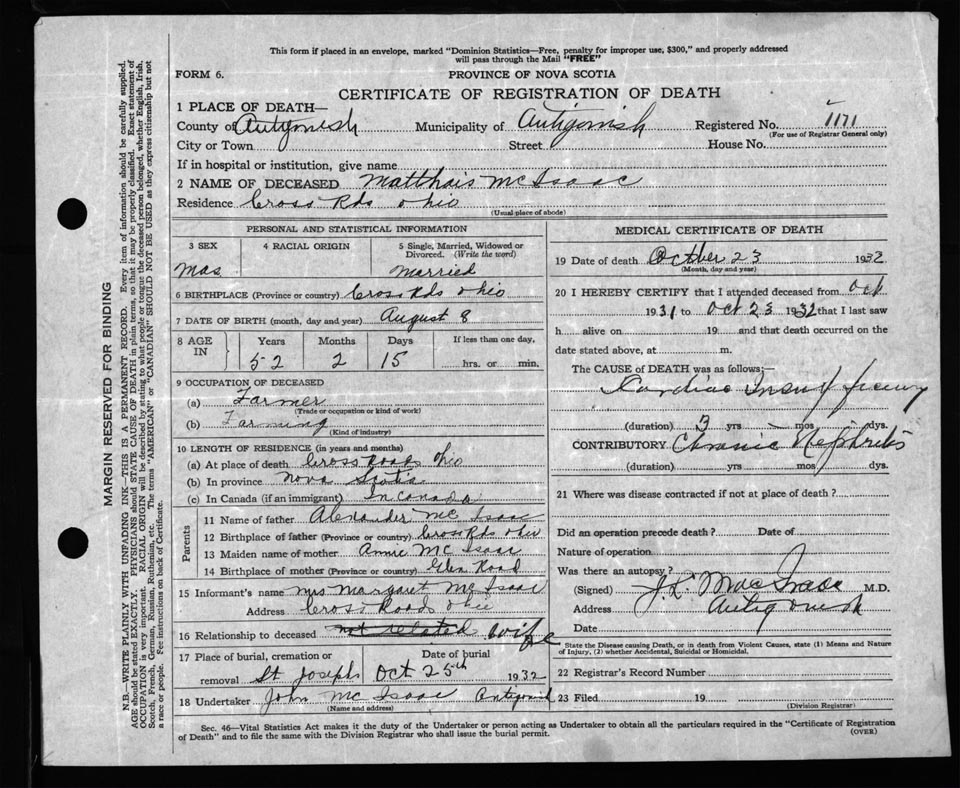 This form if placed in an envelope, marked "Dominion Statistics—Free, penalty for improper use, $300," and properly addressed
will pass through the Mail "FREE"
FORM 6.
PROVINCE OF NOVA SCOTIA
CERTIFICATE OF REGISTRATION OF DEATH
1 PLACE OF DEATH—
County of Antigonish Municipality of Antigonish Registered No. 1171
(For use of Registrar General only)
City or Town Street House No.
If in hospital or institution, give name
2 NAME OF DECEASED Matthais McIsaac
Residence Cross Rds Ohio
(Usual place of abode)
PERSONAL AND STATISTICAL INFORMATION
3 SEX 4 RACIAL ORIGIN 5 Single, Married, Widowed or
Divorced. (Write the word)
Mas Married
6 BIRTHPLACE (Province or country) Cross Rds Ohio
7 DATE OF BIRTH (month, day and year) August 8
8 AGE IN Years Months Days If less than one day,
52 2 15 hrs. or min.
9 OCCUPATION OF DECEASED
(a) Farmer
(Trade or occupation or kind of work)
(b) Farming
(Kind of industry)
10 LENGTH OF RESIDENCE (in years and months)
(a) At place of death Cross Roads Ohio
(b) In province Nova Scotia
(c) In Canada (if an immigrant) In Canada
Parents
11 Name of father Alexander McIsaac
12 Birthplace of father (Province or country) Cross Rds Ohio
13 Maiden name of mother Annie McIsaac
14 Birthplace of mother (Province or country) Glen Road
15 Informant's name Mrs Margaret McIsaac
Address Cross Roads Ohio
16 Relationship to deceased not related wife
17 Place of burial, cremation or Date of burial
removal St Josephs Oct 25th 1932
18 Undertaker John McIsaac Antigonish
(Name and address)
MEDICAL CERTIFICATE OF DEATH
19 Date of death October 23 1932
(Month, day and year)
20 I HEREBY CERTIFY that I attended deceased from Oct
1931 to Oct 23 1932 that I last saw
h alive on 19 and that death occurred on
date stated above, at m.
The CAUSE OF DEATH was as follows:—
Cardiac Insufficiency
(duration) 3 yrs mos dys.
CONTRIBUTORY Chronic Nephritis
(duration) yrs mos dys.
21 Where was disease contracted if not at place of death?
Did an operation precede death? Date of
Nature of operation
Was there an autopsy?
(Signed) M.D.
Address Antigonish
Date
State the Disease causing Death, or in death from Violent Causes, state (1) Means and Nature
of Injury, (2) whether Accidental, Suicidal or Homicidal.
22 Registrar's Record Number
23 Filed 19
(Division Registrar)
Sec. 46—Vital Statistics Act makes it the duty of the Undertaker or person acting as Undertaker to obtain all the particulars required in the "Certificate of Registration
of Death" and to file the same with the Division Registrar who shall issue the burial permit.
(OVER)
MARGIN RESERVED FOR BINDING
N.B.—WRITE PLAINLY WITH UNFADING INK—THIS IS A PERMANENT RECORD. Every item of information should be carefully supplied.
AGE should be stated EXACTLY. PHYSICIANS should STATE CAUSE OF DEATH in plain terms, so that it may be properly classified. Exact statement of
OCCUPATION is very important. RACIAL ORIGIN will be described by stating to what people or tongue the deceased person belonged, whether English, Irish,
Scotch, French, German, Russian, Ruthenian, etc. The terms "AMERICAN" or "CANADIAN" SHOULD NOT BE USED as they express citizenship but not
a race or people. See instructions on back of Certificate.